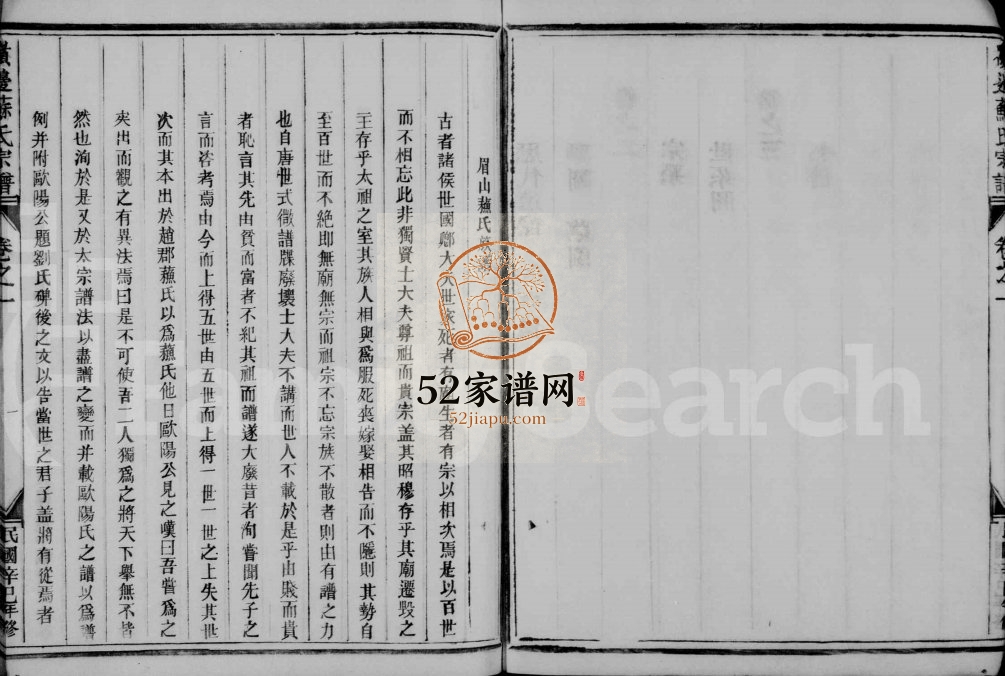 眉山蘇氏族譜
古者諸侯世國卿大夫世家死者有廟生者有宗以相次焉是以百世
而不相忘此非獨賢士大夫尊祖而貴宗盖其昭穆存乎其廟遷毀之
主存乎太祖之室其族人相與爲服死喪嫁娶相告而不隱則其勢自
至百世而不絕即無廟無宗而祖宗不忘宗族不散者則由有譜之力
也自唐世式微譜牒廢壞士大夫不講而世人不載於是乎由賤而貴
者恥言其先由貧而富者不紀其祖而譜遂大廢昔者洵嘗聞先子之
言而咨考焉由今而上得五世由五世而上得一世一世之上失其世
次而其本出於趙郡蘇氏以爲蘇氏他日歐陽公見之嘆曰吾嘗爲之
矣出而觀之有異法焉曰是不可使吾二人獨爲之將天下舉無不皆
然也洵於是又於大宗譜法以盡譜之變而并載歐陽氏之譜以爲譜
例并附歐陽公題劉氏碑後之文以告當世之君子盖將有從焉者
邊蘇氏宗譜 卷之一 民國辛巳年修
52家谱网
52jiapu.com
Search